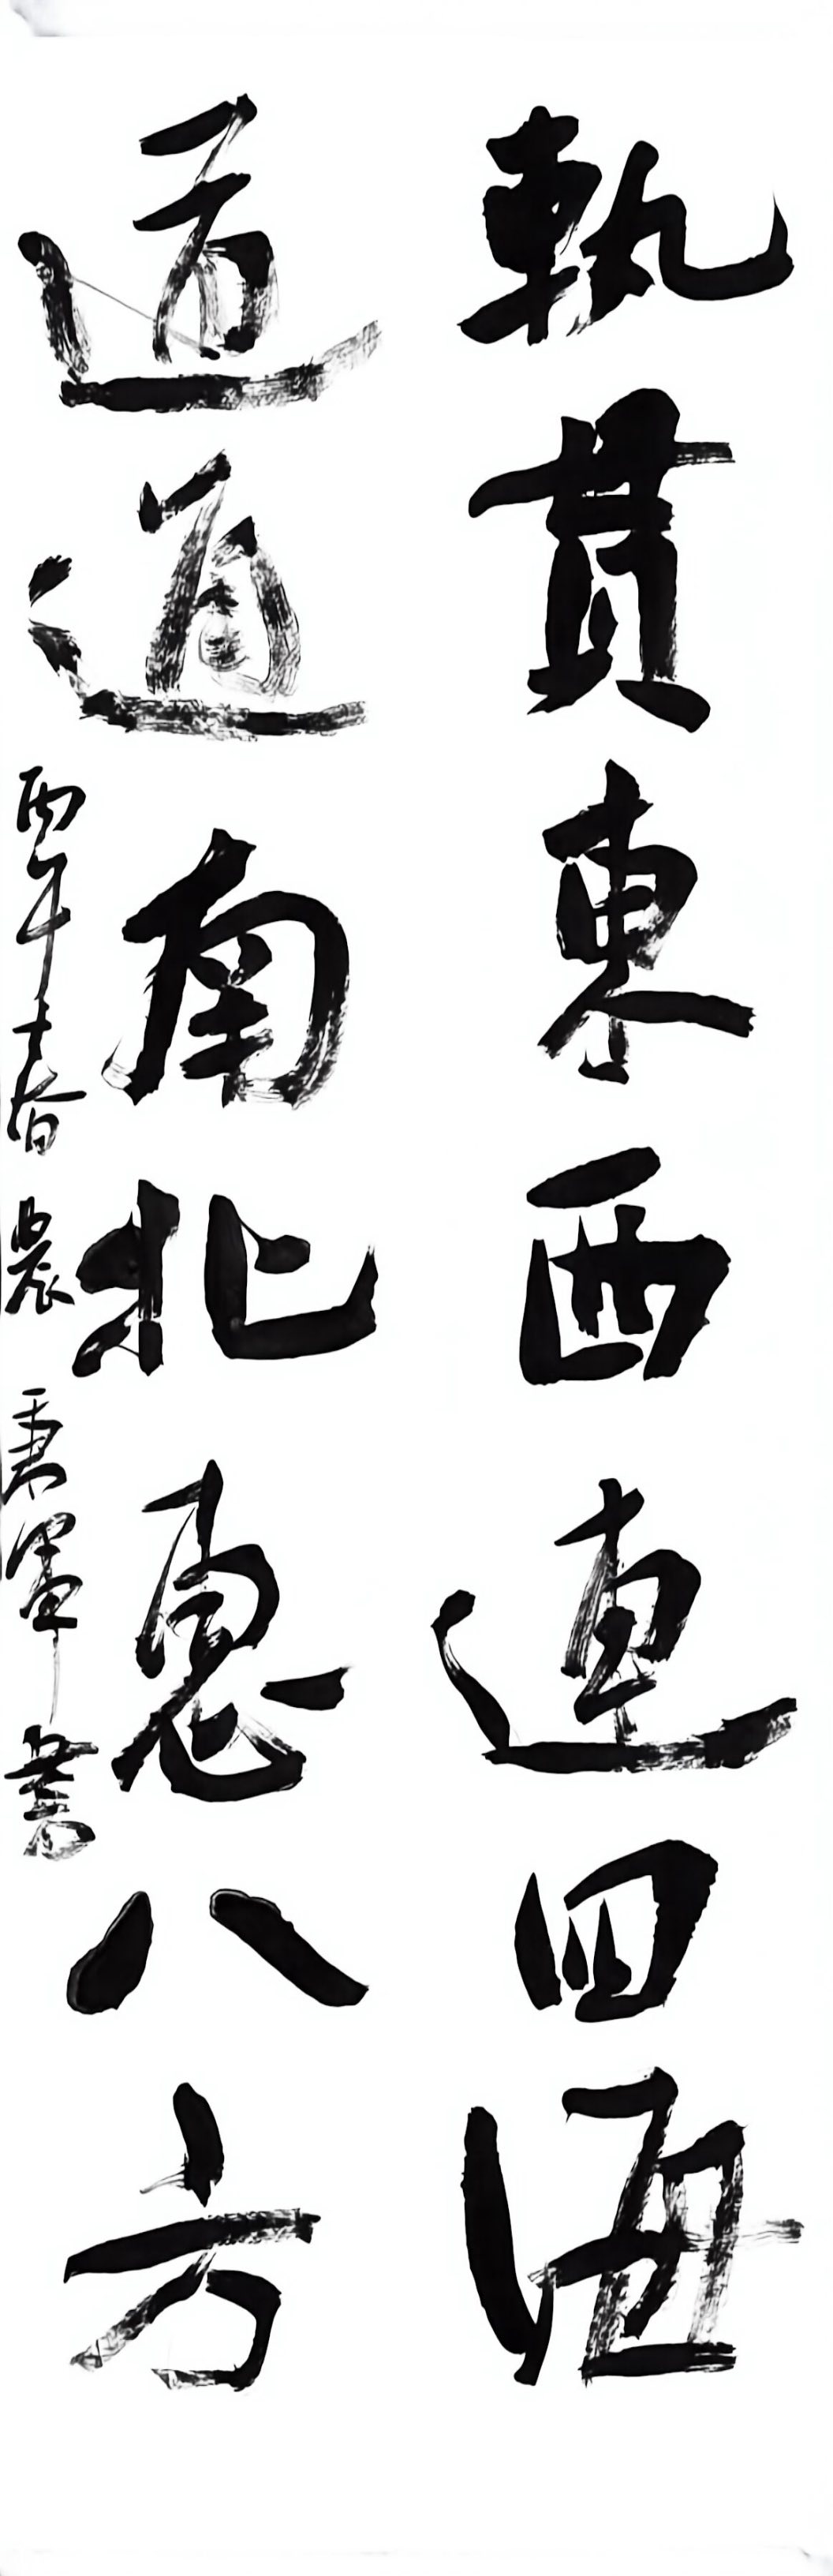 軌貫東西連四海
道通南北惠八方
丙午春農秉軍書